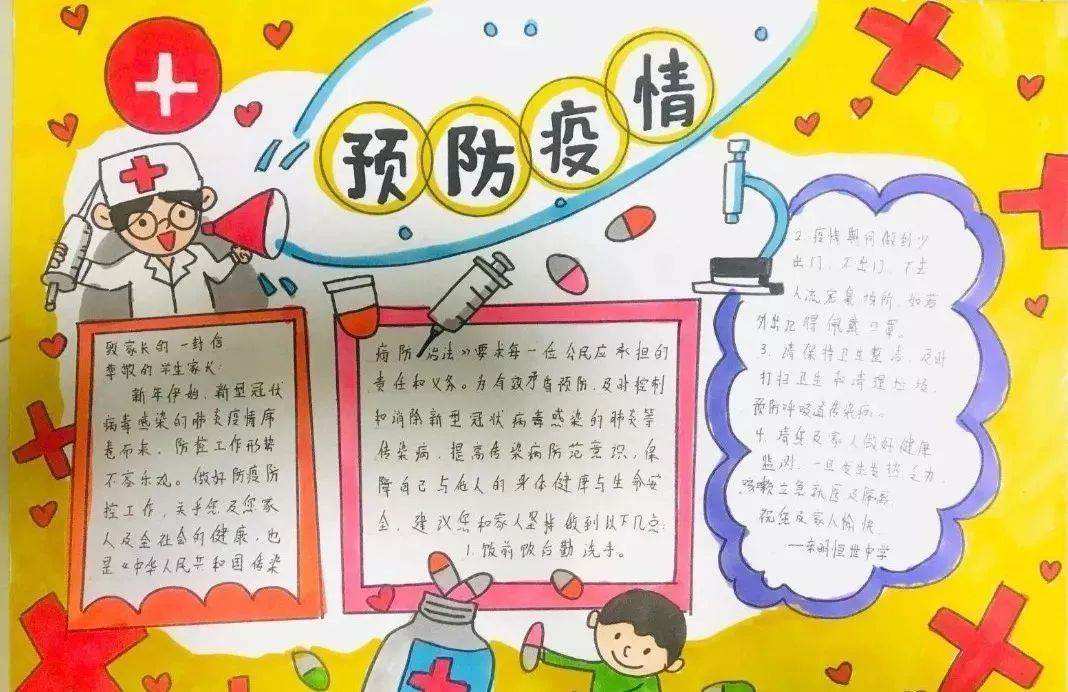 预防疫情
致家长的一封信
尊敬的学生家长:
新年伊始,新型冠状
病毒感染的肺炎疫情席
卷而来,防控工作形势
不容乐观。做好防疫防
控工作,关乎您及您家
人及全社会的健康,也
是《中华人民共和国传染
病防治法》要求每一位公民应承担的
责任和义务。为有效预防,及时控制
和消除新型冠状病毒感染的肺炎等
传染病,提高传染病防范意识,保
障自己与他人的身体健康与生命安
全,建议您和家人坚持做到以下几点:
1.饭前饭后勤洗手。
2.疫情期间做到少
出门,不出门,不去
人流密集场所,如若
外出记得佩戴口罩。
3.请保持卫生整洁,及时
打扫卫生和清理垃圾,
预防呼吸道传染病。
4.看您及家人做好健康
监测,一旦发生发热乏力
咳嗽立急就医及
祝您及家人愉快
恒世中学